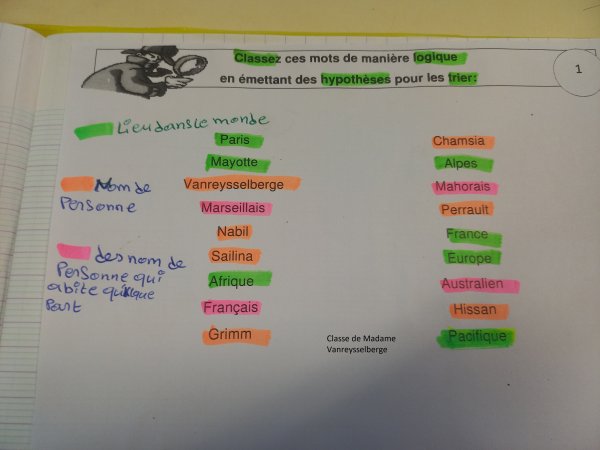 Classez ces mots de manière logique
en émettant des hypothèses pour les trier:
1
Lieu dans le monde
Paris
Mayotte
Nom de
Personne
Vanreysselberge
Marseillais
Nabil
Sailina
des nom de
Personne qui
abite quelque
Part
Afrique
Français
Grimm
Chamsia
Alpes
Mahorais
Perrault
France
Europe
Australien
Hissan
Pacifique
Classe de Madame
Vanreysselberge